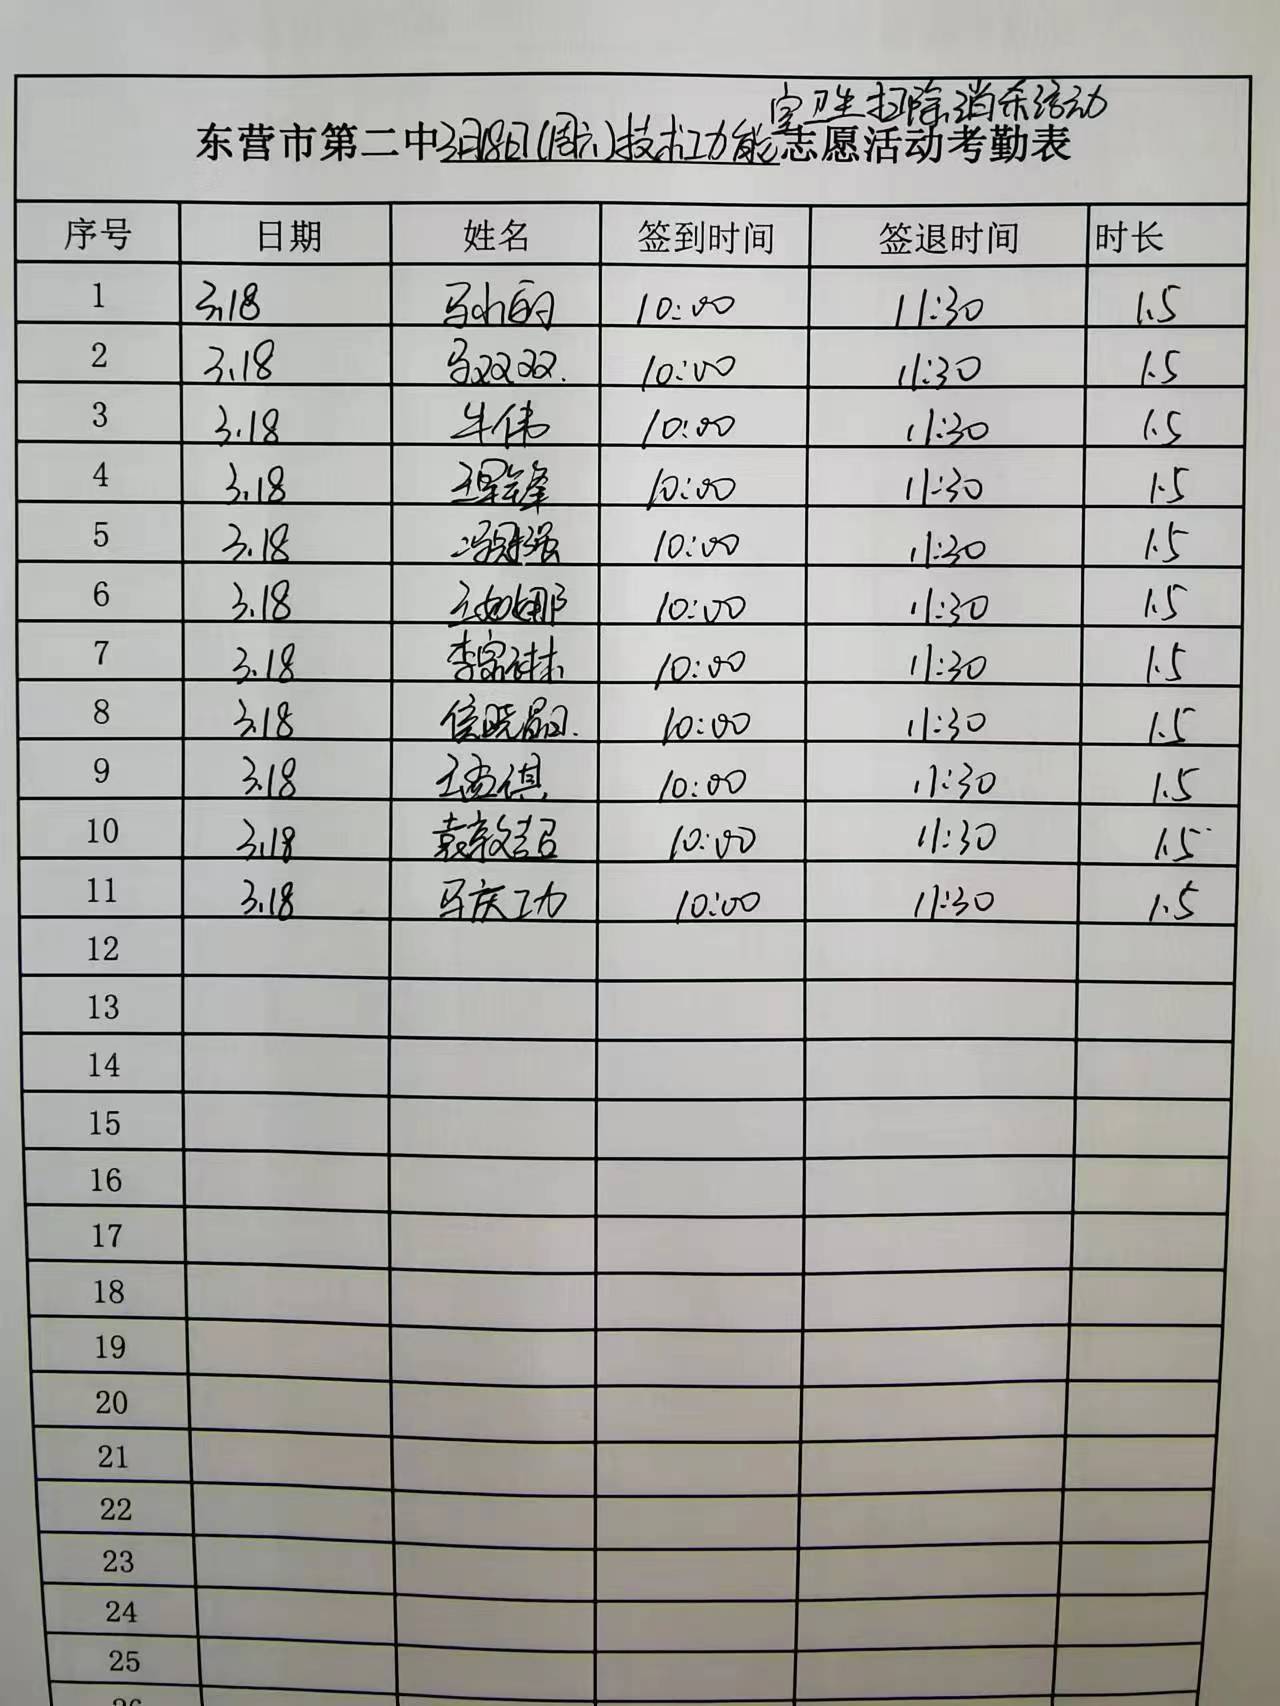 室卫生扫除,消杀活动
东营市第二中3月18日(周六)技术功能志愿活动考勤表
序号 日期 姓名 签到时间 签退时间 时长
1 3.18 10:00 11:30 1.5
2 3.18 马双双. 10:00 11:30 1.5
3 3.18 牛伟 10:00 11:30 1.5
4 3.18 10:00 11:30 1.5
5 3.18 冯冠强 10:00 11:30 1.5
6 3.18 10:00 11:30 1.5
7 3.18 李宗琳 10:00 11:30 1.5
8 3.18 10:00 11:30 1.5
9 3.18 王孟祺 10:00 11:30 1.5
10 3.18 10:00 11:30 1.5
11 3.18 马庆功 10:00 11:30 1.5
12
13
14
15
16
17
18
19
20
21
22
23
24
25
26